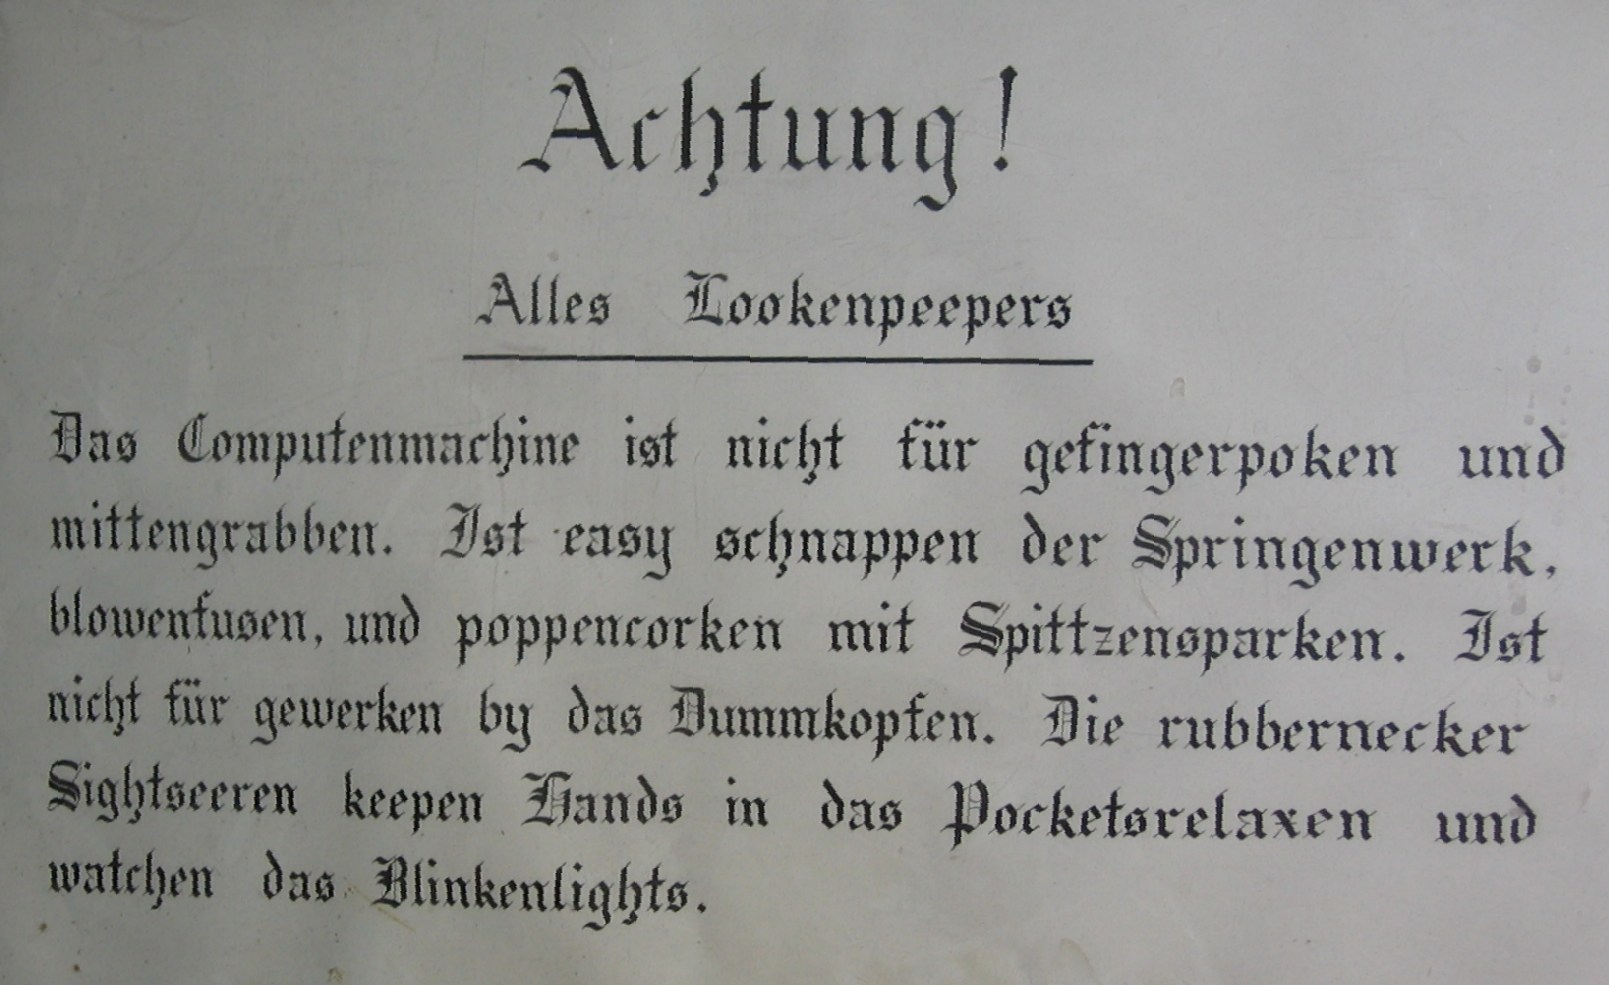 Achtung!
Alles Lookenpeepers
Das Computenmachine ist nicht für gefingerpoken und
mittengrabben. Ist easy schnappen der Springenwerk,
blowenfusen, und poppencorken mit Spittzensparken. Ist
nicht für gewerken by das Dummkopfen. Die rubbernecker
Sightseeren keepen Hands in das Pocketsrelaxen und
watchen das Blinkenlights.